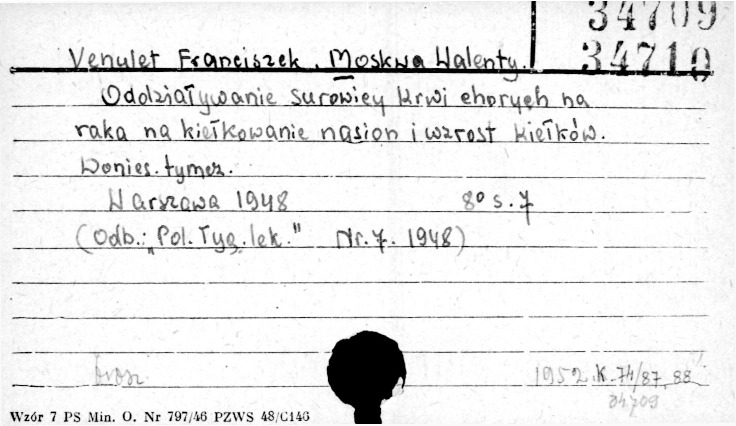 34709
34710
Venulet Franciszek. Moskwa Walenty.
Oddziaływanie surowicy krwi chorych na
raka na kiełkowanie nasion i wzrost kiełków.
Donies. tymcz.
Warszawa 1948 8° s. 7
(Odb.: „Pol. Tyg. lek." Nr. 7. 1948)
brosz 1952. K. 74/87, 88
34709
Wzór 7 PS Min. O. Nr 797/46 PZWS 48/C146